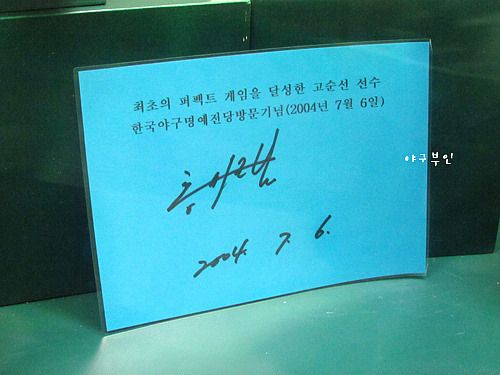 최초의 퍼펙트 게임을 달성한 고순선 선수
한국야구명예전당방문기념(2004년 7월 6일)
야구부인
2004. 7. 6.